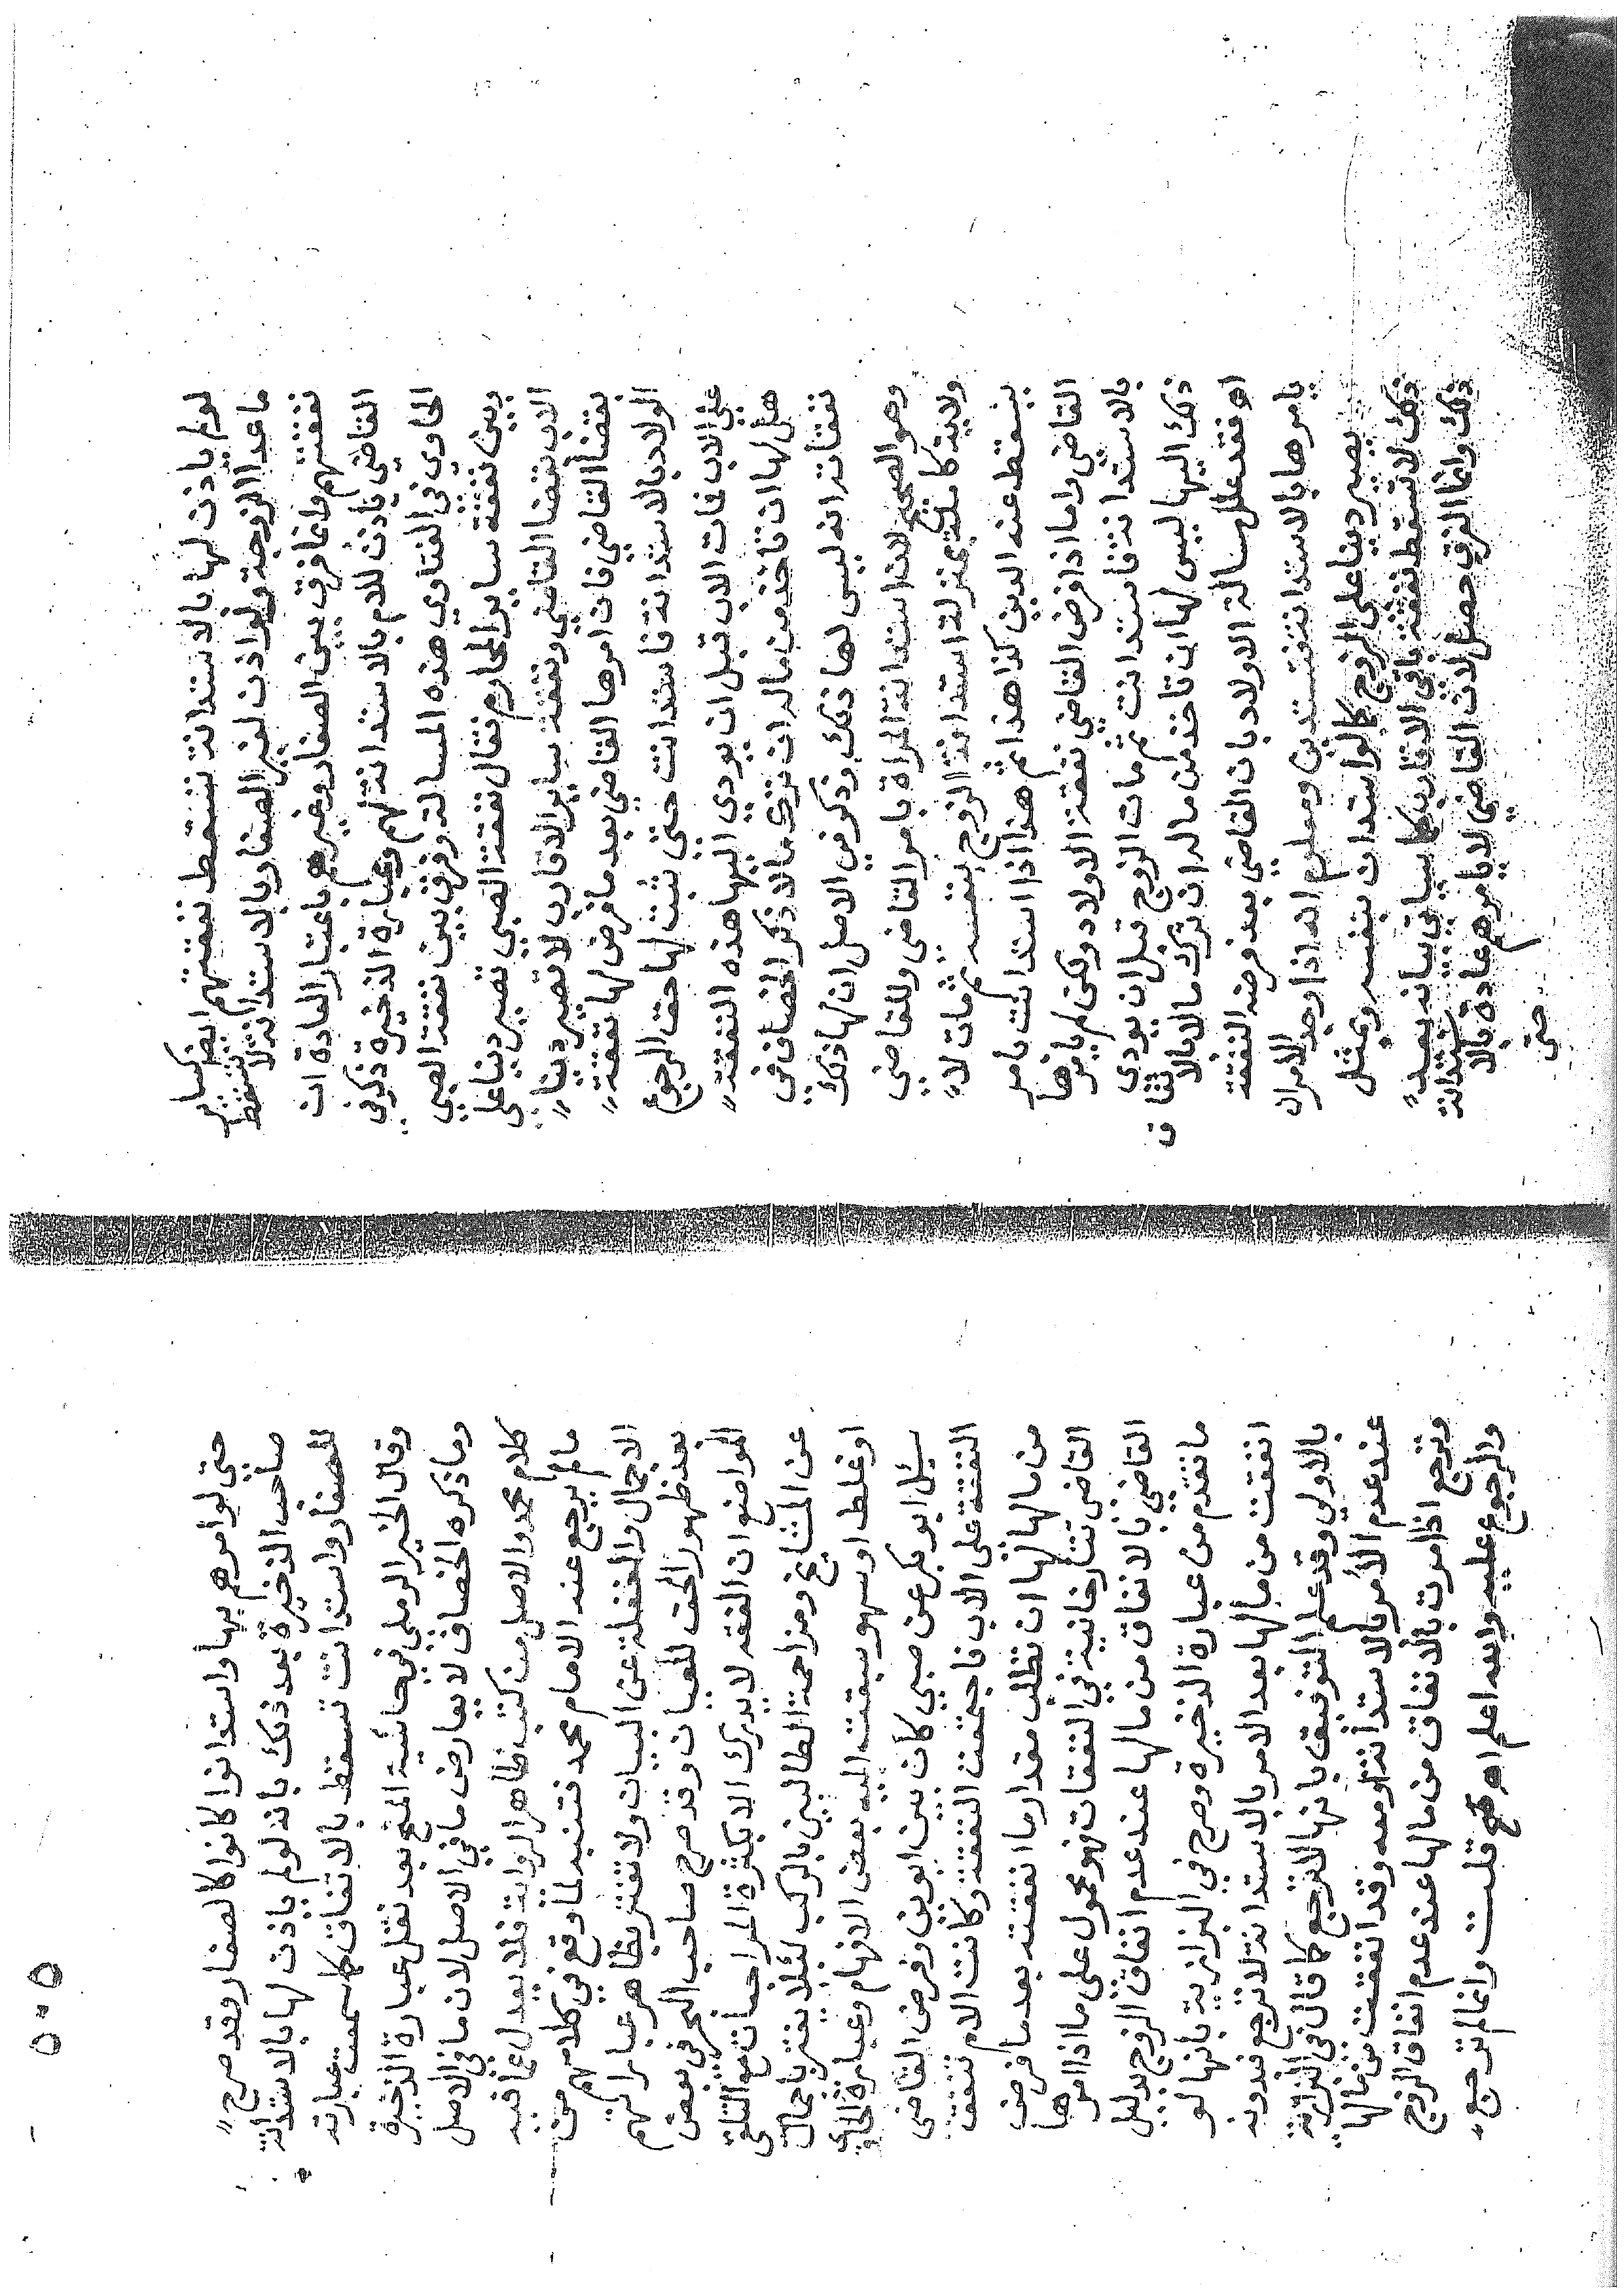 لولم ياذن لها بالاستدانة تسقط نفقتهم ايضا كساير
ماعدا الزوجة ولو اذن لغير الصغار بالاستدانة لا تسقط
نفقتهم وانما فرق بين الصغار وغيرهم باعتبار العادة ان
القاضي ياذن للام بالاستدانة لهم وعبارة الذخيرة ذكر في
الحاوي في الفتاوي هذه المسالة وفرق بين نفقة الصبي
وبين نفقة ساير المحارم فقال نفقة الصبي تصير دينا على
الاب بقضا القاضي ونفقة ساير الاقارب لا تصير دينا
بقضا القاضي فان امرها القاضي بعد ما فرض لها نفقة
الولاد بالاستدانة فاستدانت حتى ثبت لها حق الرجوع
على الاب فات الاب قبل ان يودي اليها هذه النفقة
هل لها ان تاخذ من ماله ان ترك مالا ذكر الخصاف في
نفقاته انه ليس لها ذلك وذكر في الاصل ان لها ذلك
وهو الصحيح لان استدانة المراة بامر القاضي وللقاضي
ولاية كاملة بمنزلة استدانة الزوج بنفسه ثم مات لا
يسقط عنه الدين كذا هذا ثم هذا اذا استدانت بامر
القاضي واما اذا فرض القاضي نفقة الاولاد ولكن لم يامرها
بالاستدانة فاستدانت ثم مات الزوج قبل ان يودي
ذلك اليها ليس لها ان تاخذ من ماله ان ترك مالا بالاتفاق
اه فقد علل مسالة الاولاد بان القاضي بعد فرضه النفقة
يامرها بالاستدانة فتستدين ومعلوم انه اذا وجد الامران
يصير دينا على الزوج كما لو استدان بنفسه وبمثل
ذلك لا تسقط نفقة باقي الاقارب كما سياتي بيانه بعيد
ذلك وانما الفرق حصل لان القاضي لا يامرهم عادة بالاستدانة
حتى
حتى لو امرهم بها واستدانوا كانوا كالصغار وقد صرح
صاحب الذخيرة بعد ذلك بانه لو لم ياذن لها بالاستدانة
للصغار واستدانت تسقط بالاتفاق كما سمعت عبارته
وقال الخير الرملي في حاشية المنح بعد نقل عبارة الذخيرة
وما ذكره الخصاف لا يعارض ما في الاصل لان ما في الاصل
كلام محمد والاصل من كتب ظاهر الرواية فلا يعدل عما فيه
مالم يرجع عنه الامام محمد فتنبه لما وقع في كلامهم من
الاجمال والغفلة عن البيان ولا تغتر بظاهر عباراتهم
بعد ظهور الحق للعيان وقد صرح صاحب البحر في بعض
المواضع ان الفقه لا يدرك الا بكثرة المراجعات مع التلقي
عن المشايخ ومزاحمة الطالبين بالركب لئلا يغتر باجمال
او غلط او سهو سبقت اليه بعض الافهام وعبارة الحاوي
سئل ابو بكر عن صبي كان بين ابوين وفرض القاضي
النفقة على الاب فاجتمعت النفقة وكانت الام تنفق
من مالها لها ان تطلب مقدار ما انفقته بعد ما فرض
القاضي تتارخانية في النفقات فهو محمول على ما اذا امرها
القاضي بالانفاق من مالها عند عدم انفاق الزوج بدليل
ما تقدم من عبارة الذخيرة وصرح في البزازية بانها لو
انفقت من مالها بعد الامر بالاستدانة لا ترجع فبدونه
بالاولي وقد علم التوفيق بانها لا ترجع كما قال في البزازية
عند عدم الامر بالاستدانة او معه وقد انفقت من مالها
وترجع اذا امرت بالانفاق من مالها عند عدم انفاق الزوج
والرجوع عليه والله اعلم اه منح قلت وانما لم ترجع